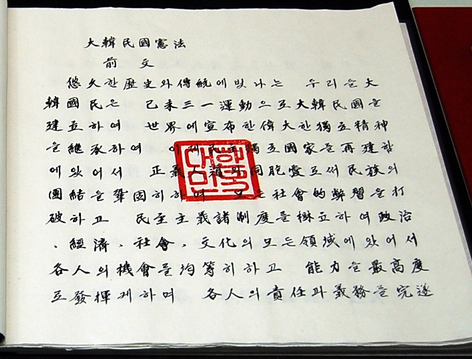 大韓民國憲法
前文
悠久한歷史와傳統에빗나는 우리들大
韓國民은 己未三一運動으로大韓民國을
建立하여 世界에宣布한偉大한獨立精神
을繼承하여 民主獨立國家를再建함
에있어서 正義人道와同胞愛로써民族의
團結을鞏固히하며 모든社會的弊習을打
破하고 民主主義諸制度를樹立하여政治
,經濟,社會,文化의모든領域에있어서
各人의機會를均等히하고 能力을最高度
로發揮케하며 各人의責任과義務를完遂